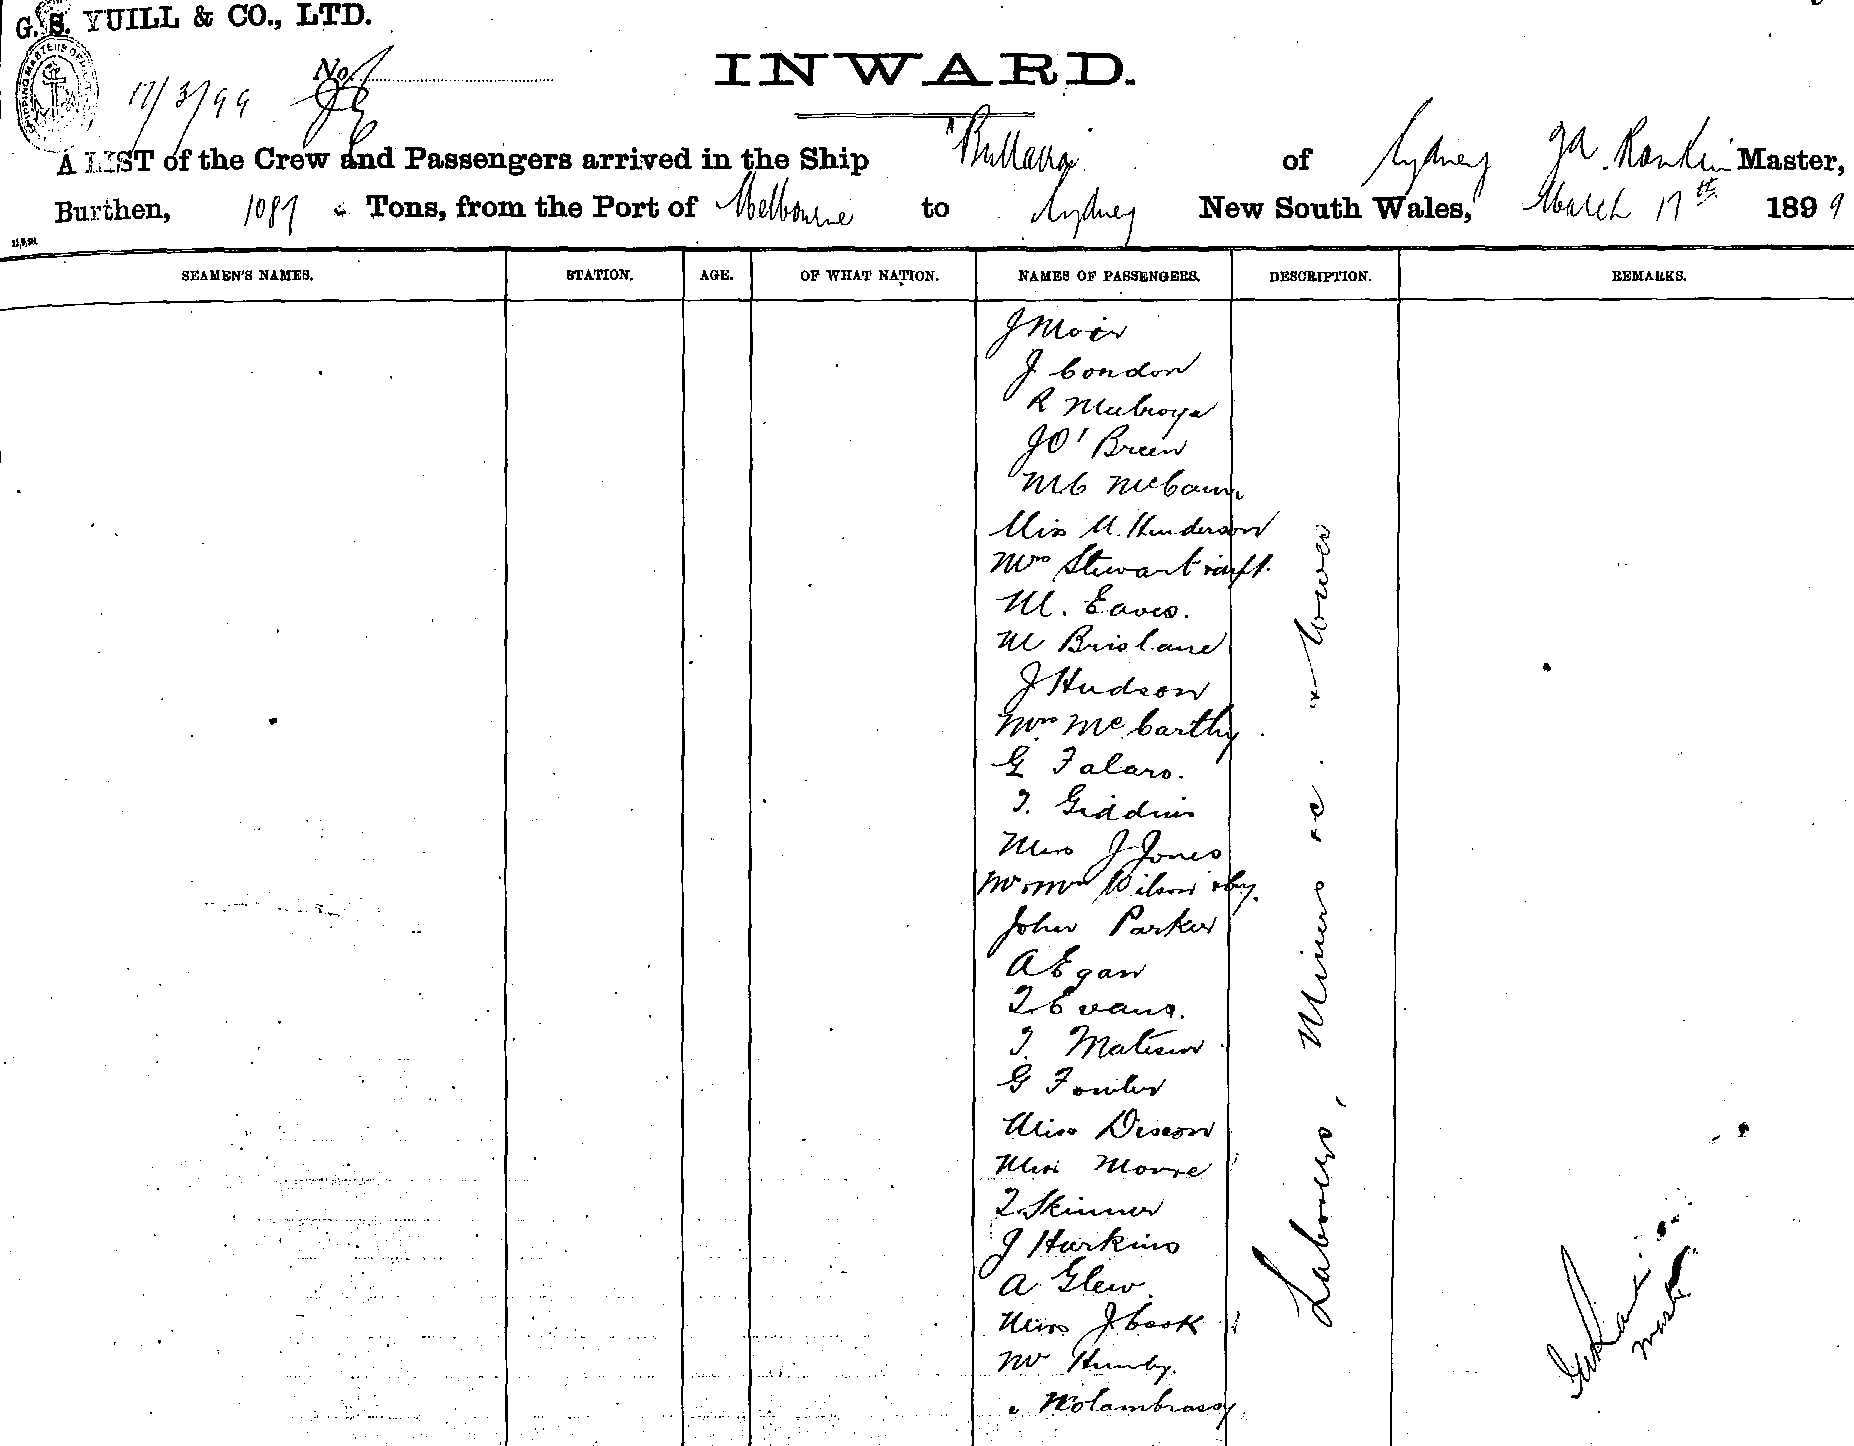 G. S. YUILL & CO., LTD.
INWARD.
17/3/99 No.
A LIST of the Crew and Passengers arrived in the Ship "Bullarra of Sydney JA Rankin Master,
Burthen, 1089 Tons, from the Port of Melbourne to Sydney New South Wales, March 17th 1899
SEAMEN'S NAMES. STATION. AGE. OF WHAT NATION. NAMES OF PASSENGERS. DESCRIPTION. REMARKS.
J Moir
J Condon
R Mulroya
J O'Breen
McCann
Miss M. Henderson
Mrs Stewart
M. Eaves.
M Brisbane
J Hudson
Mrs McCarthy
G Falaro.
T. Giddins
Miss J Jones
Mr & Mrs Wilson
John Parker
A Egan
T Evans.
T. Matison
G Fowler
Miss Dixon
Miss Moore
T. Skinner
J Harkins
A Glew
Miss J Cook
Mr Humby.
Labourers, Miners &c.